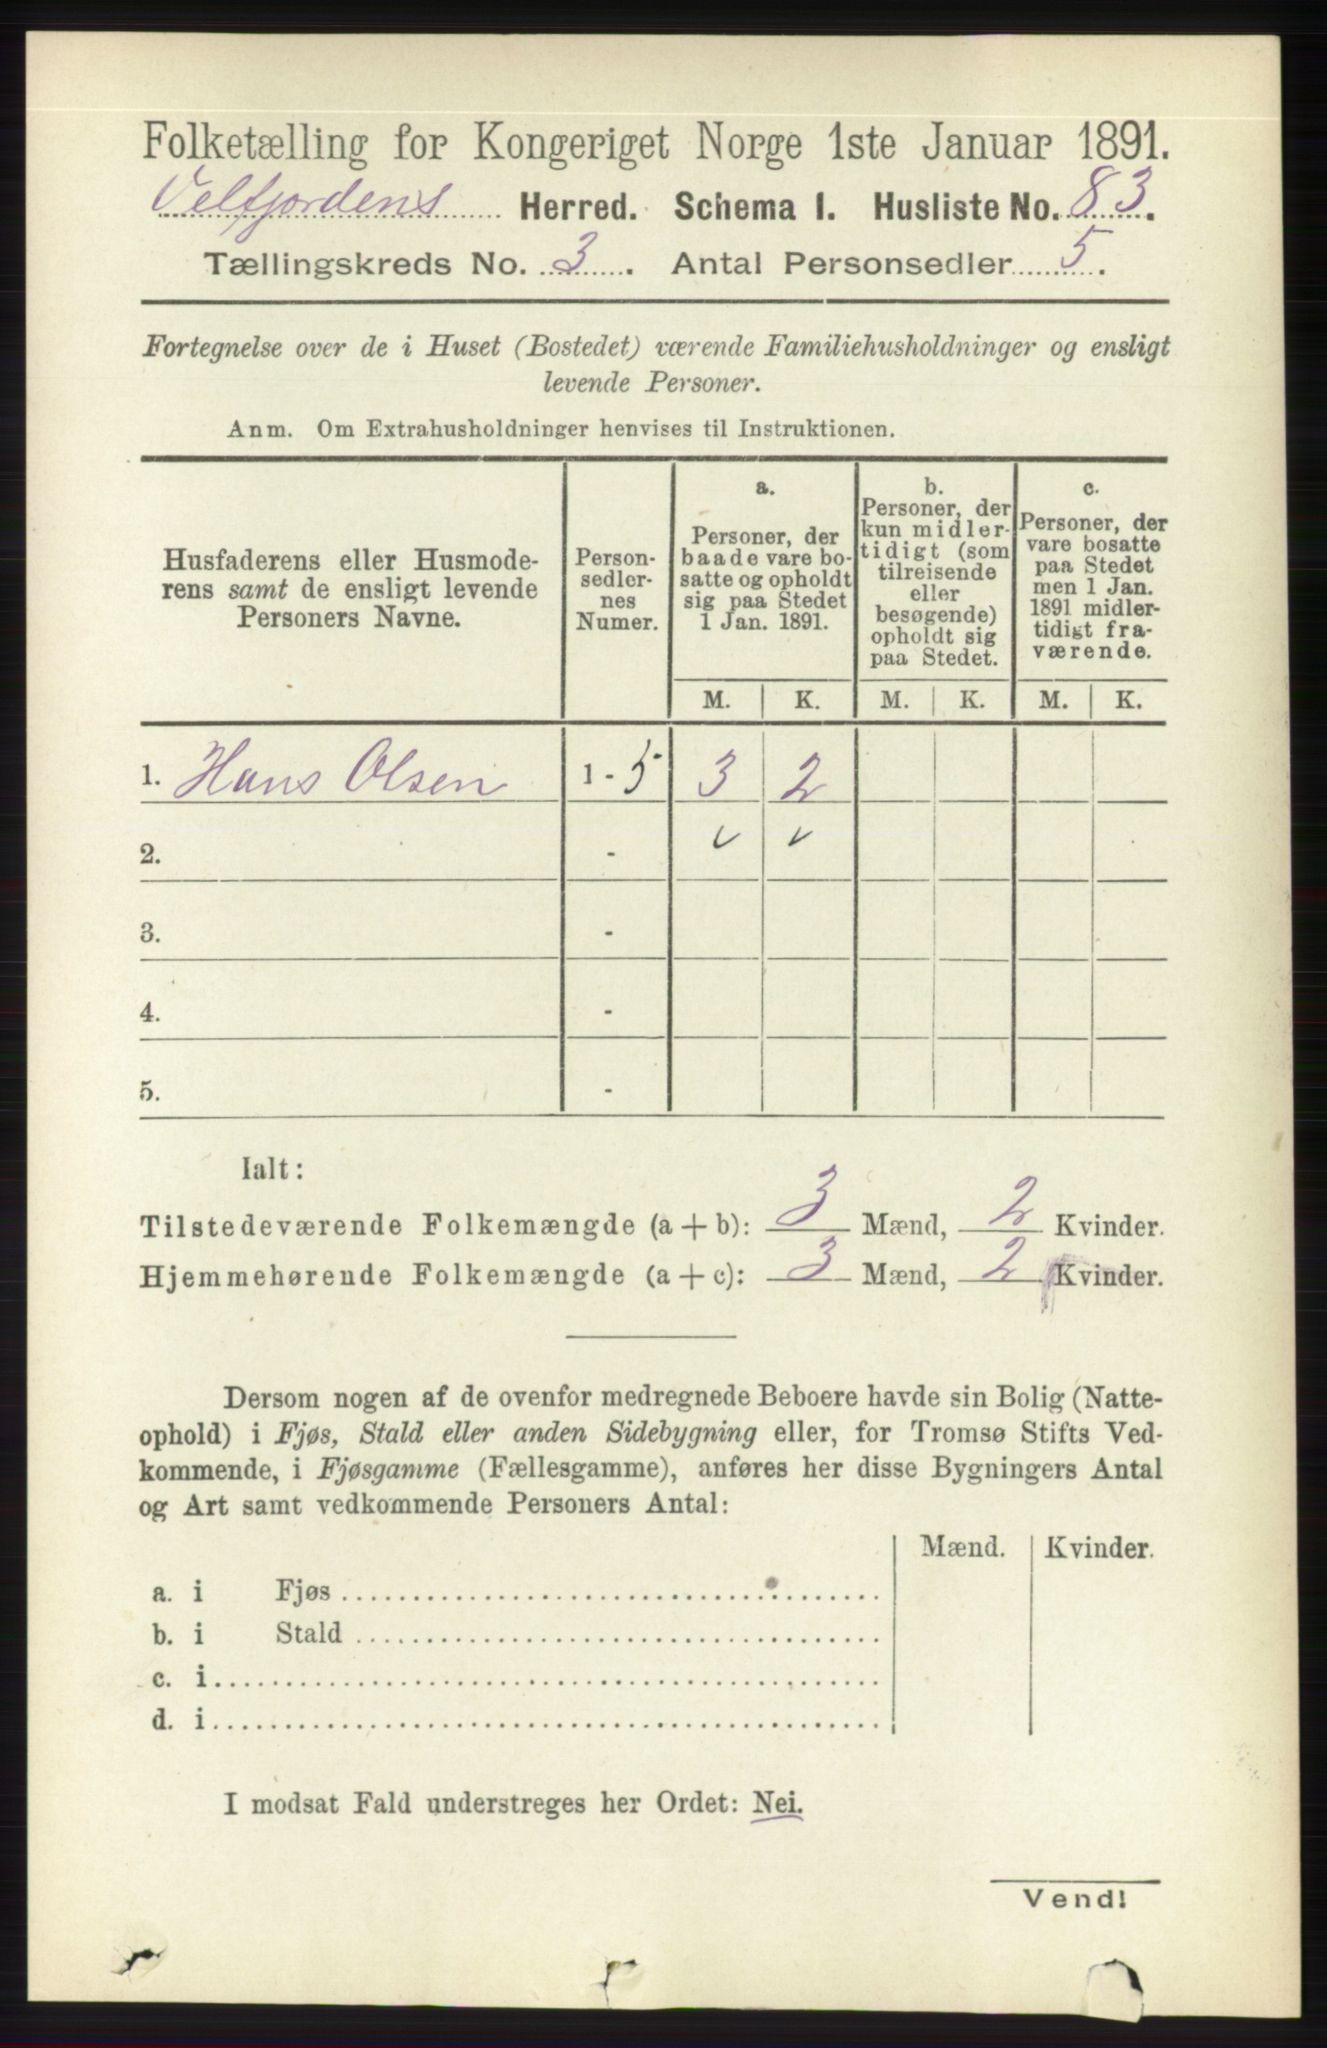 Folketælling for Kongeriget Norge 1ste Januar 1891.
Velfjordens Herred. Schema I. Husliste No. 83.
Tællingskreds No. 3. Antal Personsedler 5.
Fortegnelse over de i Huset (Bostedet) værende Familiehusholdninger og ensligt
levende Personer.
Anm. Om Extrahusholdninger henvises til Instruktionen.
Husfaderens eller Husmode-
rens samt de ensligt levende
Personers Navne.
Person-
sedler-
nes
Numer.
a.
Personer, der
baade vare bo-
satte og opholdt
sig paa Stedet
1 Jan. 1891.
b.
Personer, der
kun midler-
tidigt (som
tilreisende
eller
besøgende)
opholdt sig
paa Stedet.
c.
Personer, der
vare bosatte
paa Stedet
men 1 Jan.
1891 midler-
tidigt fra-
værende.
M. K. M. K. M. K.
1. Hans Olsen 1 - 5 3 2
2. - v v
3. -
4. -
5. -
Ialt:
Tilstedeværende Folkemængde (a + b): 3 Mænd, 2 Kvinder.
Hjemmehørende Folkemængde (a + c): 3 Mænd, 2 Kvinder.
Dersom nogen af de ovenfor medregnede Beboere havde sin Bolig (Natte-
ophold) i Fjøs, Stald eller anden Sidebygning eller, for Tromsø Stifts Ved-
kommende, i Fjøsgamme (Fællesgamme), anføres her disse Bygningers Antal
og Art samt vedkommende Personers Antal:
Mænd. Kvinder.
a. i Fjøs
b. i Stald
c. i
d. i
I modsat Fald understreges her Ordet: Nei.
Vend!